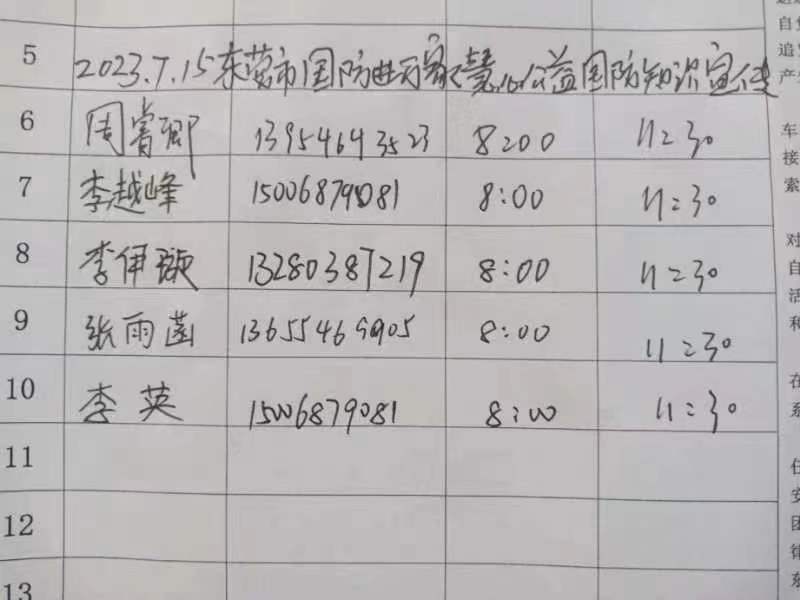 5 2023.7.15东营市国防进万家慧心公益国防知识宣传
6 周睿卿 13954643523 8:00 11:30
7 李越峰 15006879081 8:00 11:30
8 李伊璇 13280387219 8:00 11:30
9 张雨菡 13655469905 8:00 11:30
10 李英 15006879081 8:00 11:30
11
12
13
自
追
产
车
接
索
对
自
活
和
在
系
任
安
团
铺
东